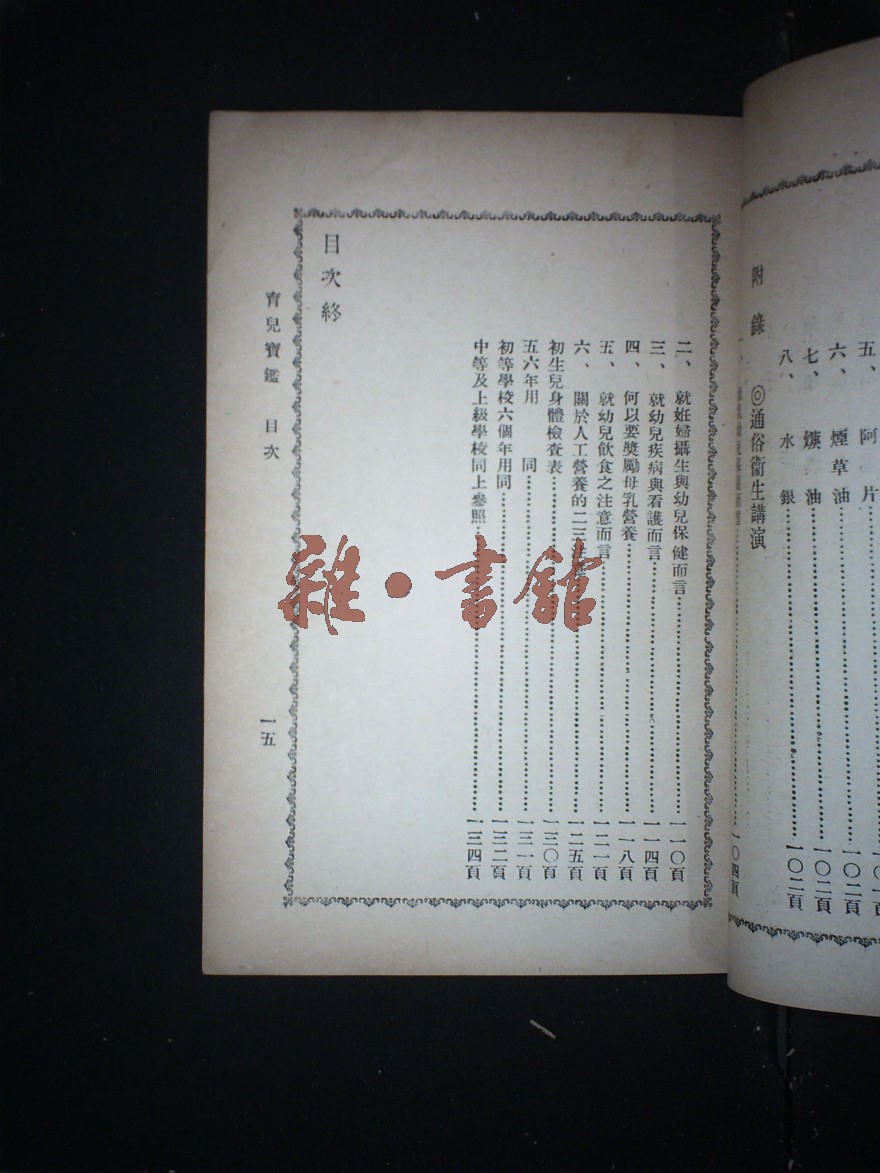 五、阿片……一〇一頁
六、煙草油……一〇二頁
七、煤油……一〇二頁
八、水銀……一〇二頁
附錄 ◎通俗衞生講演
一、……一〇四頁
二、就妊婦攝生與幼兒保健而言……一一〇頁
三、就幼兒疾病與看護而言……一一四頁
四、何以要獎勵母乳營養……一一八頁
五、就幼兒飲食之注意而言……一二一頁
六、關於人工營養的二三……一二五頁
初生兒身體檢查表……一三〇頁
五六年用 同……一三一頁
初等學校六個年用同……一三二頁
中等及上級學校同上參照……一三四頁
目次終
育兒寶鑑 目次
一五
雜·書館